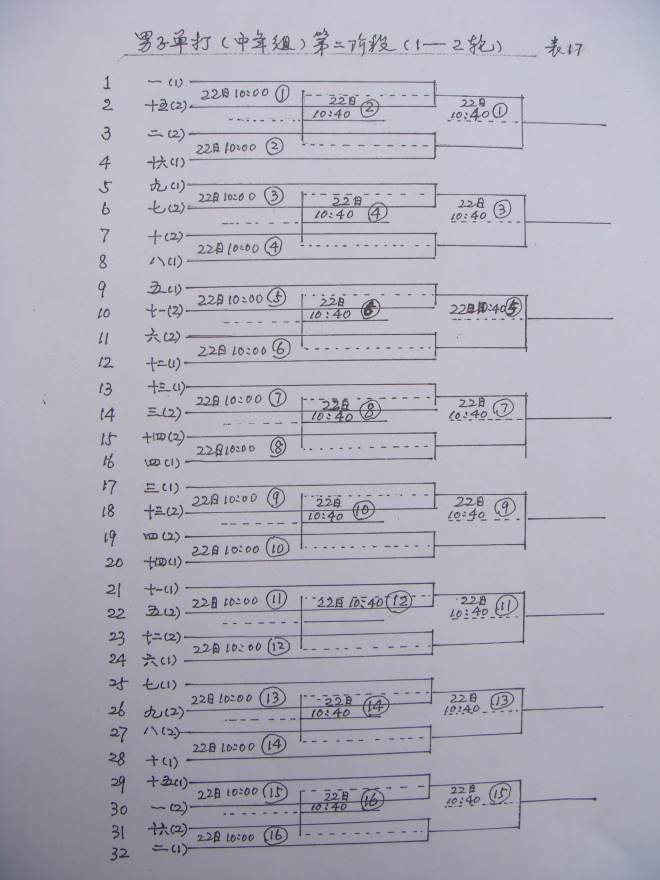 男子单打(中年组)第二阶段(1—2轮) 表17
1 一(1)
22日10:00 ①
2 十五(2)
22日 10:40 ②
22日 10:40 ①
3 二(2)
22日10:00 ②
4 十六(1)
5 九(1)
22日10:00 ③
6 七(2)
22日 10:40 ④
22日 10:40 ③
7 十(2)
22日10:00 ④
8 八(1)
9 五(1)
22日10:00 ⑤
10 十一(2)
22日 10:40 ⑥
22日10:40 ⑤
11 六(2)
22日10:00 ⑥
12 十二(1)
13 十三(1)
22日10:00 ⑦
14 三(2)
22日 10:40 ⑧
22日 10:40 ⑦
15 十四(2)
22日10:00 ⑧
16 四(1)
17 三(1)
22日10:00 ⑨
18 十三(2)
22日 10:40 ⑩
22日 10:40 ⑨
19 四(2)
22日10:00 ⑩
20 十四(1)
21 十一(1)
22日10:00 ⑪
22日10:40 ⑫
22日 10:40 ⑪
22 五(2)
23 十二(2)
22日10:00 ⑫
24 六(1)
25 七(1)
22日10:00 ⑬
26 九(2)
22日 10:40 ⑭
22日 10:40 ⑬
27 八(2)
22日10:00 ⑭
28 十(1)
29 十五(1)
22日10:00 ⑮
30 一(2)
22日 10:40 ⑯
22日 10:40 ⑮
31 十六(2)
22日10:00 ⑯
32 二(1)